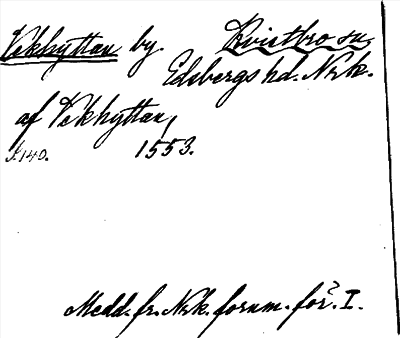 Vekhyttan by. Kvistbro sn
Edsbergs hd. Nrk.
af Vekhyttan,
S. 140. 1553.
Medd. fr. Nrk. fornm. för. I.